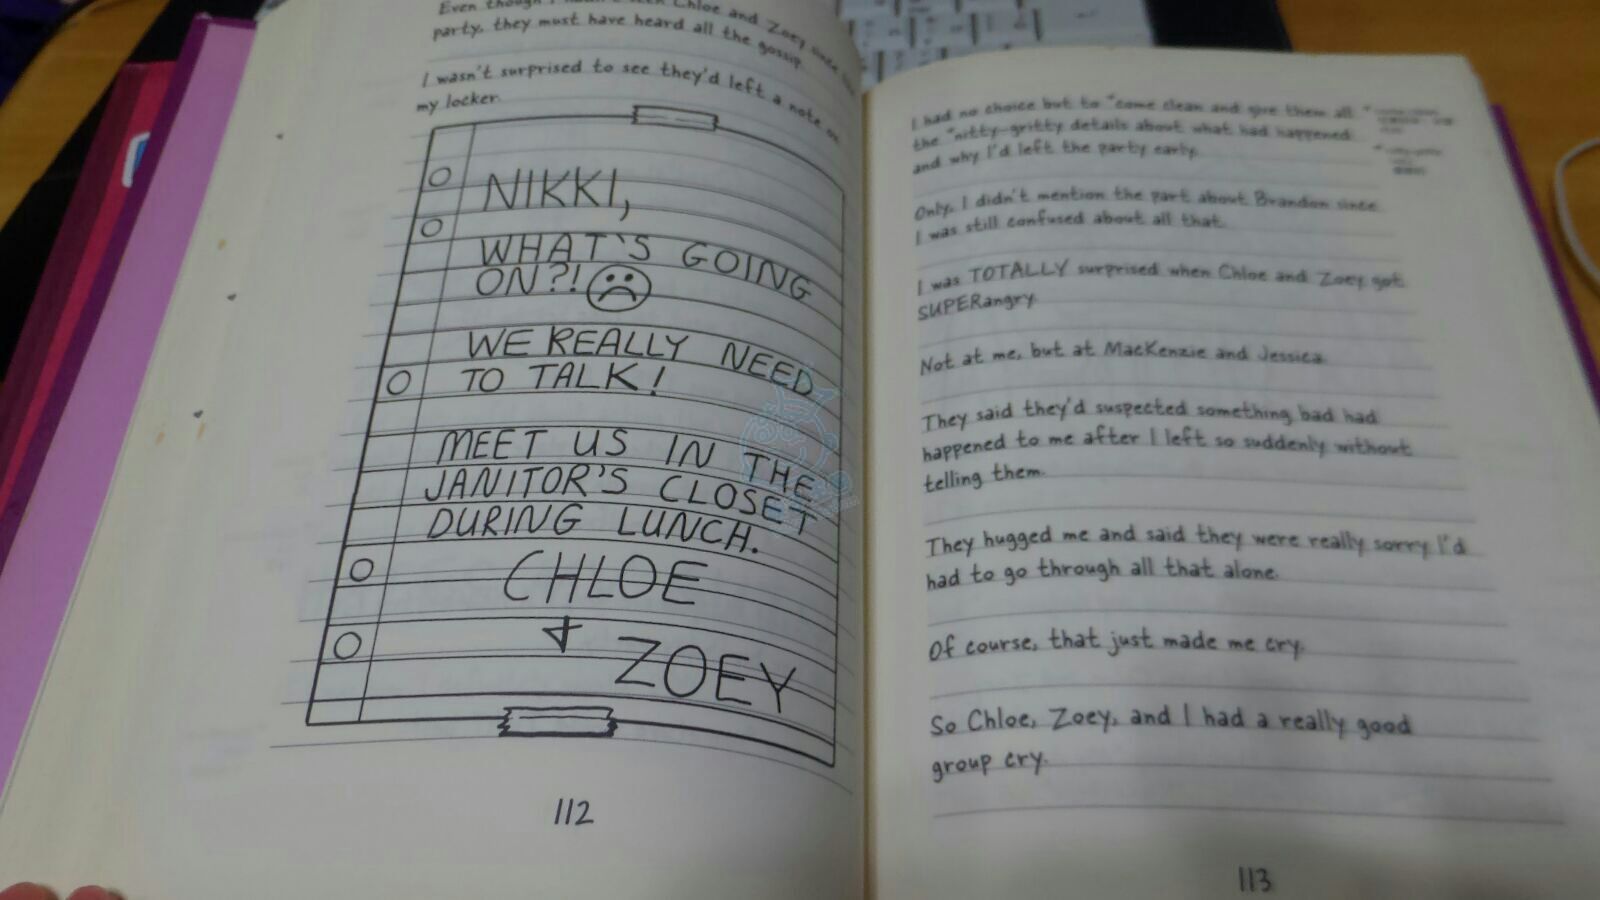 Chloe and Zoey since
party, they must have heard all the gossip.
I wasn't surprised to see they'd left a note on
my locker.
NIKKI,
WHAT'S GOING
ON?!
WE REALLY NEED
TO TALK!
MEET US IN THE
JANITOR'S CLOSET
DURING LUNCH.
CHLOE
+
ZOEY
112
I had no choice but to *come clean and give them all
the *nitty-gritty details about what had happened
and why I'd left the party early.
Only, I didn't mention the part about Brandon since
I was still confused about all that.
I was TOTALLY surprised when Chloe and Zoey got
SUPERangry.
Not at me, but at MacKenzie and Jessica.
They said they'd suspected something bad had
happened to me after I left so suddenly without
telling them.
They hugged me and said they were really sorry I'd
had to go through all that alone.
Of course, that just made me cry.
So Chloe, Zoey, and I had a really good
group cry.
113